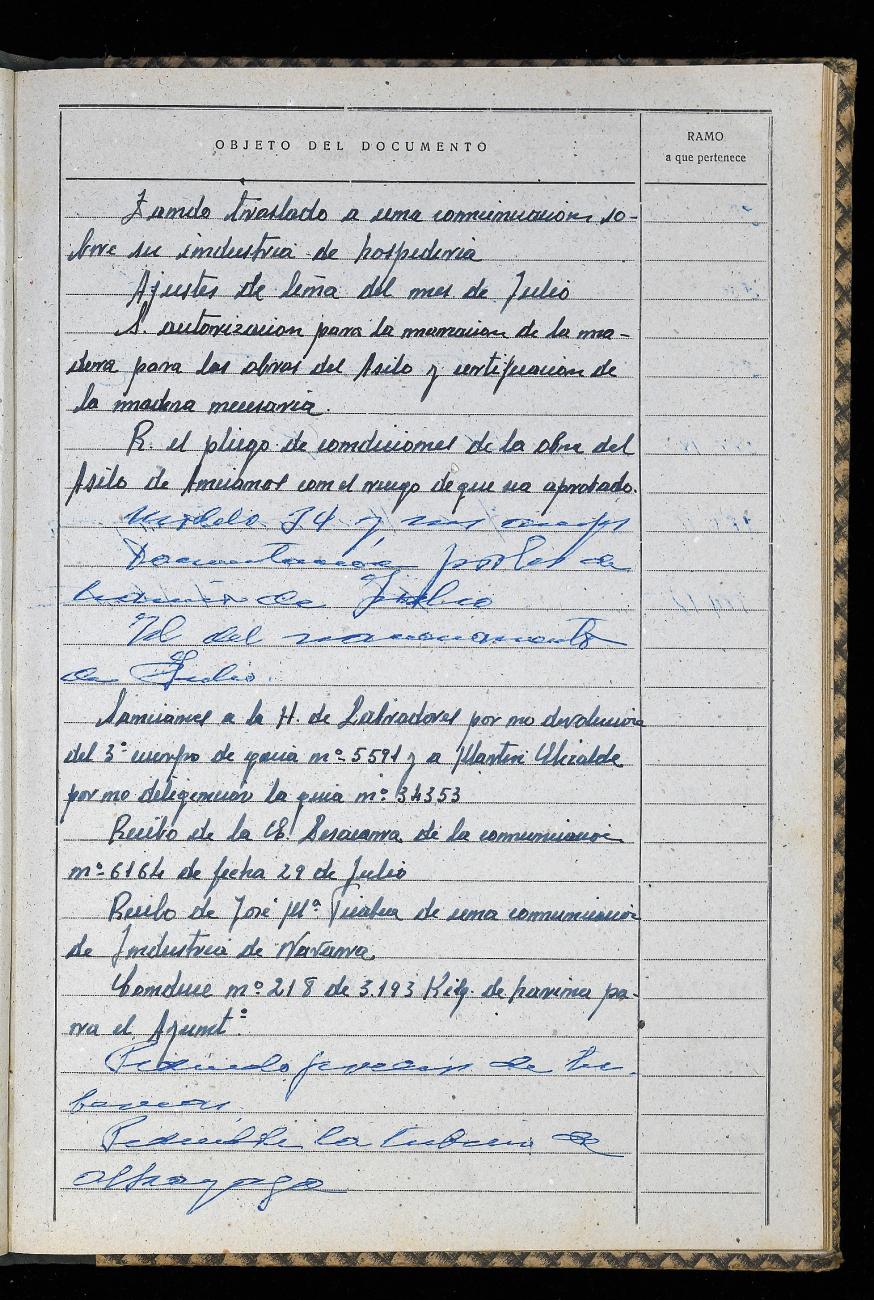 OBJETO DEL DOCUMENTO
RAMO
a que pertenece
Dando traslado a una comunicacion so-
bre su industria de hospederia
Ajustes de leña del mes de Julio
S. autorizacion para la marcacion de la ma-
dera para las obras del Asilo y certificacion de
la madera necesaria.
R. el pliego de condiciones de la obra del
Asilo de Ancianos con el ruego de que sea aprobado.
Modelo 34 y
Documentación por los de
de Julio
Id del racionamiento
de Julio.
Sanciones a la H. de Labradores por no devolucion
del 3º cuerpo de guia nº 5591 y a Martin Elizalde
por no diligenciar la guia nº 34353
Recibo de la E. Sesacarra de la comunicacion
nº 6164 de fecha 29 de Julio
Recibo de José Mª de una comunicacion
de Industria de Navarra
Conduce nº 218 de 3.193 Kilg. de harina pa-
ra el Ayuntº
Pidiendo precios de tu-
berias
Pidiendo la tuberia de